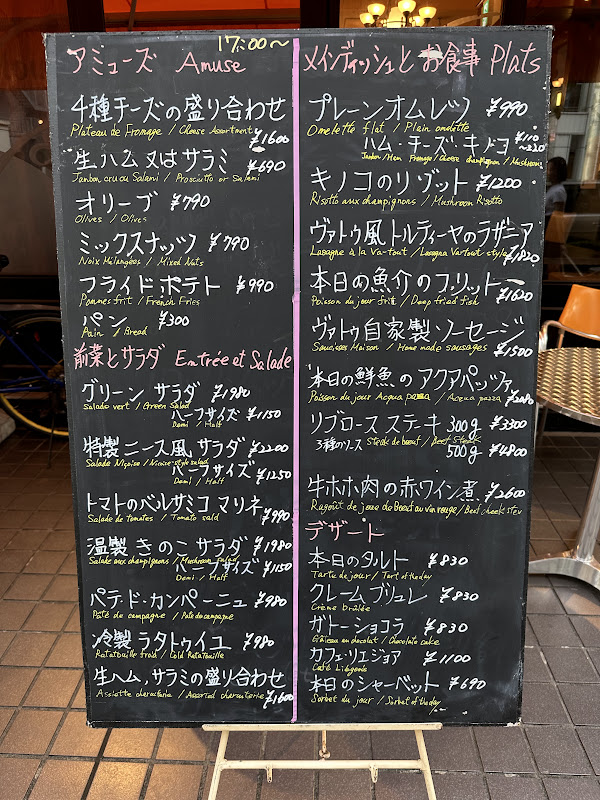 17:00～
アミューズ Amuse
4種チーズの盛り合わせ
Plateau de Fromage / Cheese Assortment
¥1600
生ハム又はサラミ ¥690
Jambon cru ou Salami / Prosciutto or Salami
オリーブ ¥790
Olives / Olives
ミックスナッツ ¥790
Noix Mélangées / Mixed Nuts
フライドポテト ¥990
Pommes frit / French Fries
パン ¥300
Pain / Bread
前菜とサラダ Entrée et Salade
グリーン サラダ ¥1980
Salade vert / Green Salad
ハーフサイズ ¥1150
Demi / Half
特製ニース風 サラダ ¥2200
Salade Niçoise / Nicoise-style salad
ハーフサイズ ¥1250
Demi / Half
トマトのバルサミコ マリネ
Salade de tomates / Tomato salad
¥990
温製 きのこ サラダ ¥1980
Salade aux champignons / Mushroom Salad
ハーフサイズ ¥1150
Demi / Half
パテ・ド・カンパーニュ ¥980
Pâté de campagne / Pate de campagne
冷製 ラタトゥイユ ¥980
Ratatouille froid / Cold Ratatouille
生ハム, サラミの盛り合わせ
Assiette charcuterie / Assorted charcuterie
¥1600
メインディッシュと お食事 Plats
プレーンオムレツ ¥990
Omelette flat / Plain omelette
ハム・チーズ・キノコ ¥110～330
Jambon / Ham Fromage / Cheese champignon / Mushrooms
キノコのリゾット ¥1200
Risotto aux champignons / Mushroom Risotto
ヴァトゥ風 トルティーヤのラザニア
Lasagne à la Va-tout / Lasagna Vartout style
¥1820
本日の魚介のフリット
Poisson du jour frit / Deep fried fish
¥1620
ヴァトゥ自家製ソーセージ
Saucisses Maison / Home made sausages
¥1500
本日の鮮魚の アクアパッツァ
Poisson du jour Acqua pazza / Acqua pazza
リブロース ステーキ 300g ¥3300
3種のソース Steak de bœuf / Beef Steak
500g ¥4800
牛ホホ肉の赤ワイン煮 ¥2600
Ragoût de joue de Bœuf au vin rouge / Beef cheek stew
デザート
本日のタルト ¥830
Tarte du jour / Tart of the day
クレームブリュレ ¥830
Crème brûlée
ガトーショコラ ¥830
Gâteau au chocolat / Chocolate cake
カフェ・リエジョア ¥1100
Café Liégeois
本日のシャーベット ¥690
Sorbet du jour / Sorbet of the day